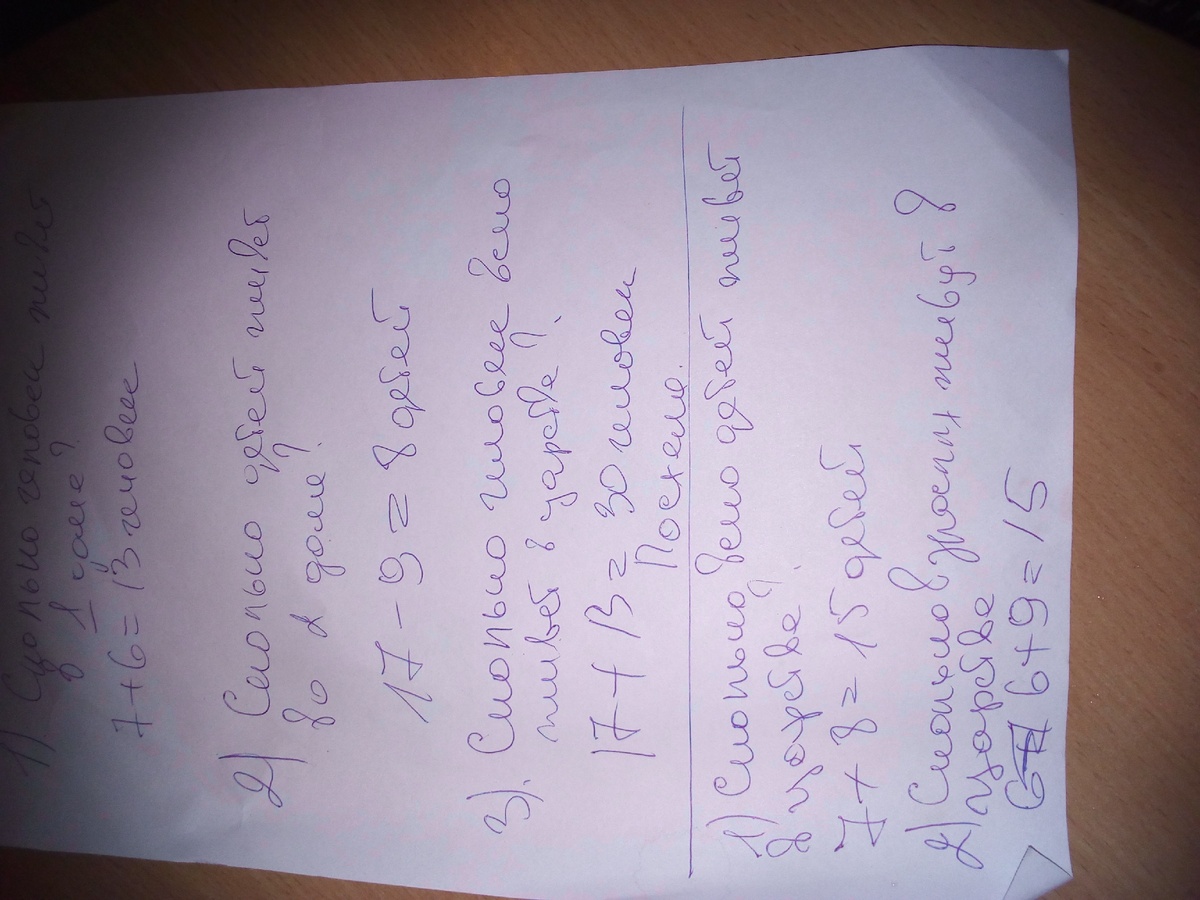 1) Сколько человек живет
в 1 доме?
7+6=13 человек
2) Сколько детей живет
во 2 доме?
17-9=8 детей
3). Сколько человек всего
живет в царстве?
17+13=30 человек
По схеме.
1) Сколько всего детей живет
в царстве?
7+8=15 детей
2) Сколько взрослых живут в
царстве
6+9=15